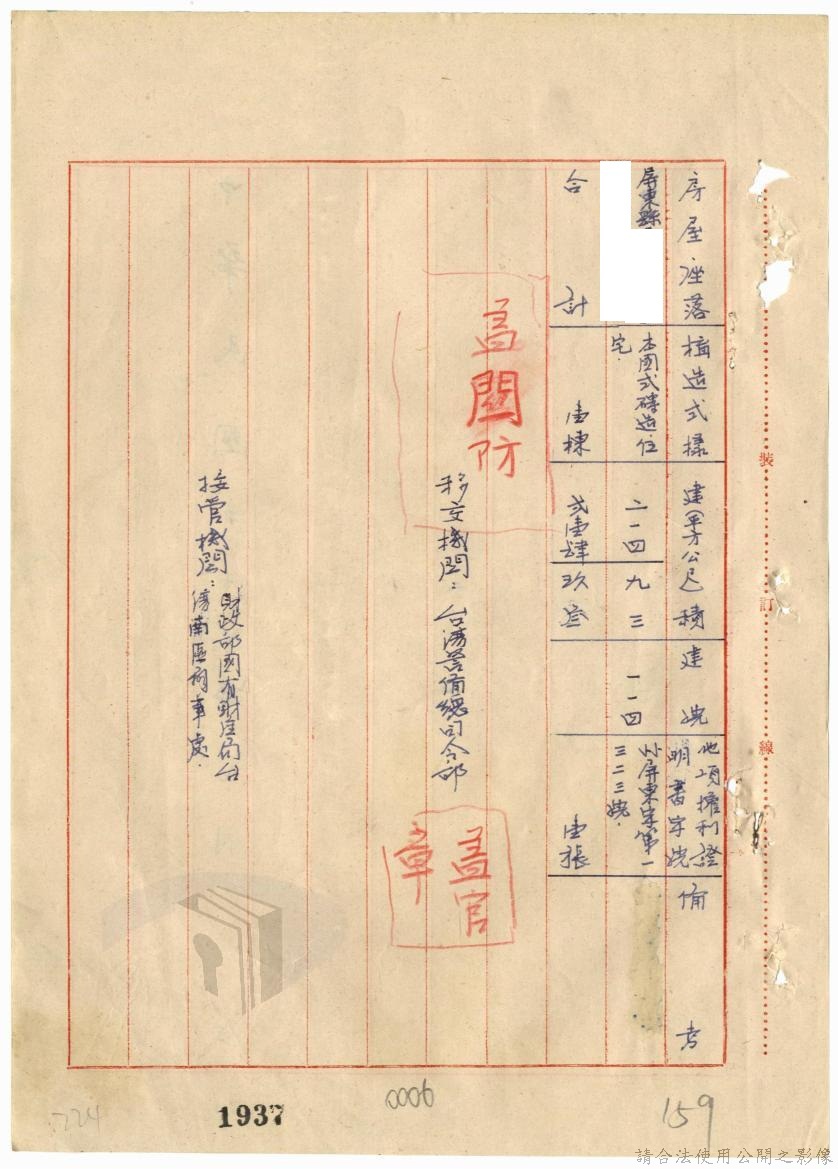 房屋座落
構造式樣
建(平方公尺)積
建號
他項權利證
明書字號
備考
屏東縣
本國式磚造住
宅.
二一四九三
一一四
屏東字第一
三二三號.
合計
壹棟
貳壹肆玖叁
壹張
蓋關防
移交機關：台灣警備總司令部
蓋官
章
接管機關：
財政部國有財產局台
灣南區辦事處.
裝
訂
線
1937
0006
159
724
請合法使用公開之影像